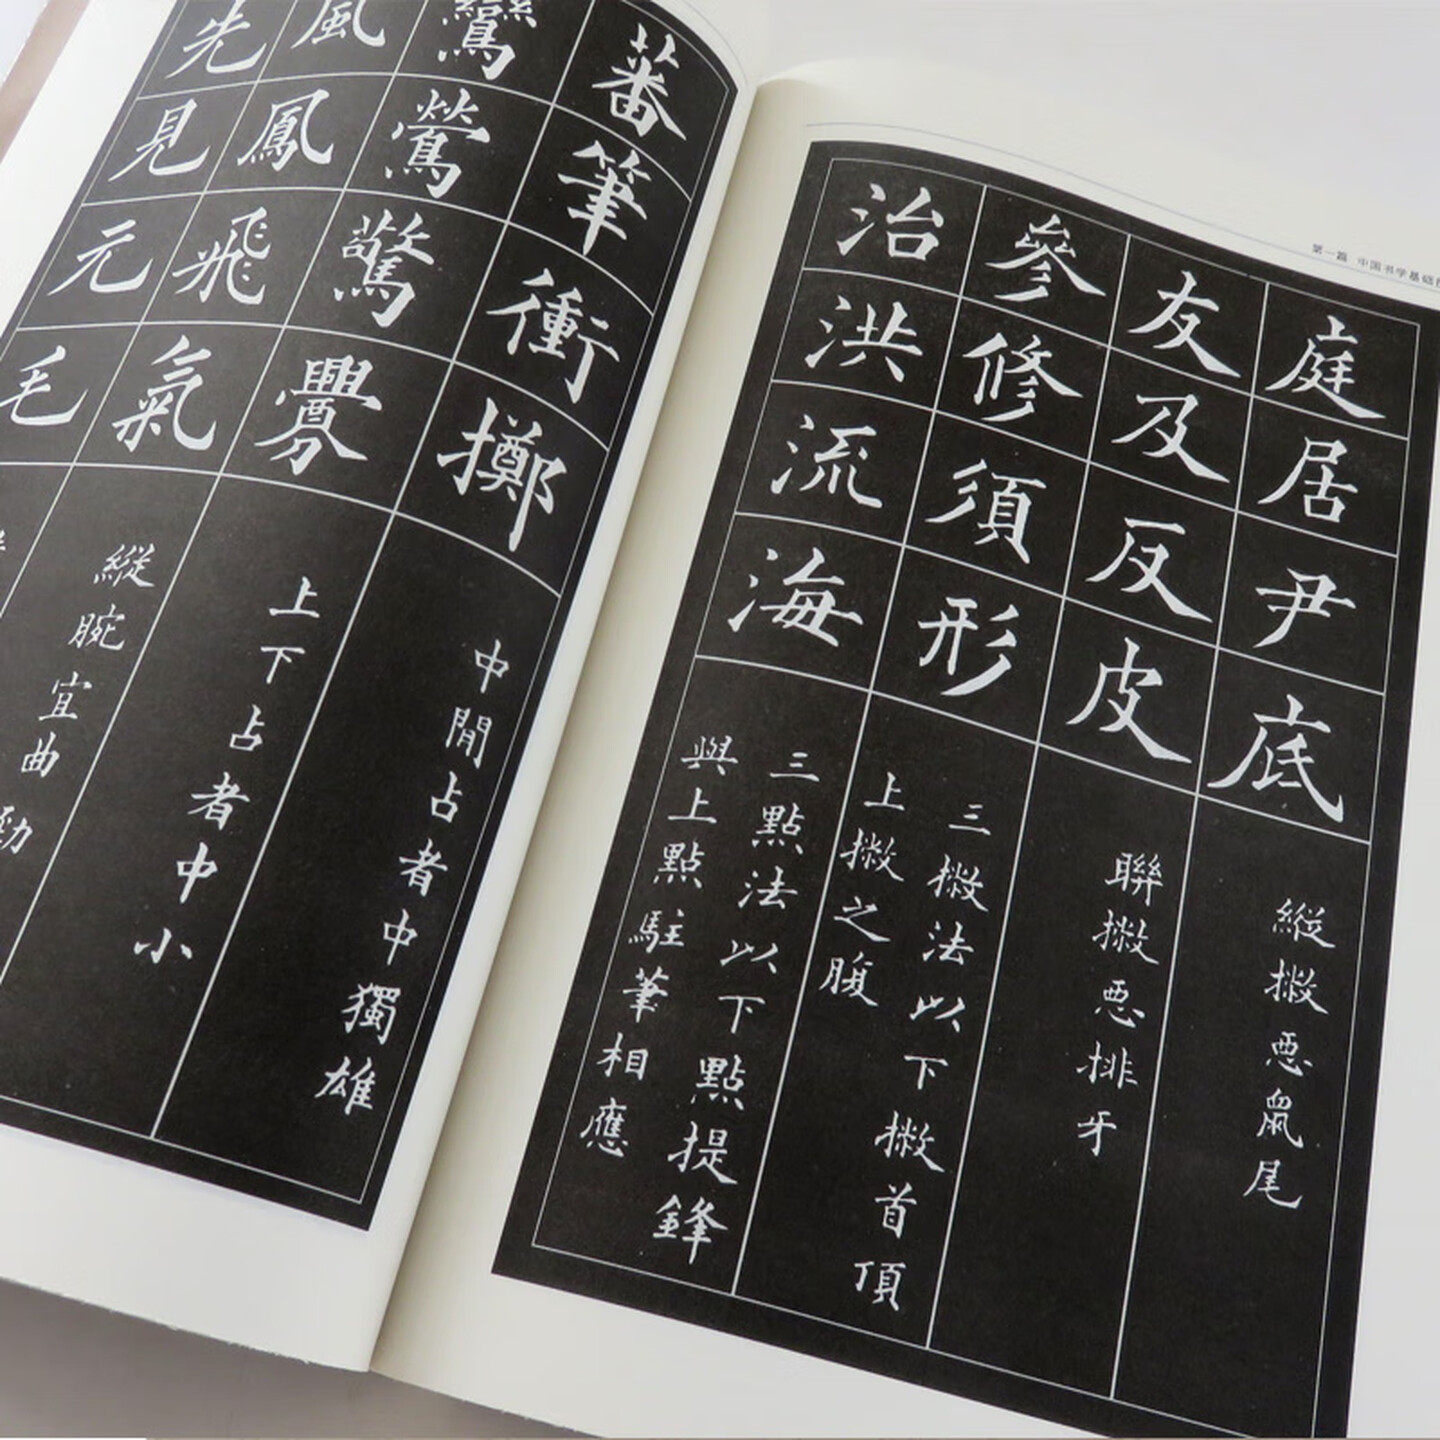 蕃筆衝擲
中閒占者中獨雄
鸞鶯驚釁
上下占者中小
風鳳飛氣
縱腕宜曲勁
先見元毛
第一篇 中国书学基础
庭居尹底
縱撇惡鼠尾
友及反皮
聯撇惡排牙
參修須形
三撇法以下撇首頂
上撇之腹
治洪流海
三點法以下點提鋒
與上點駐筆相應